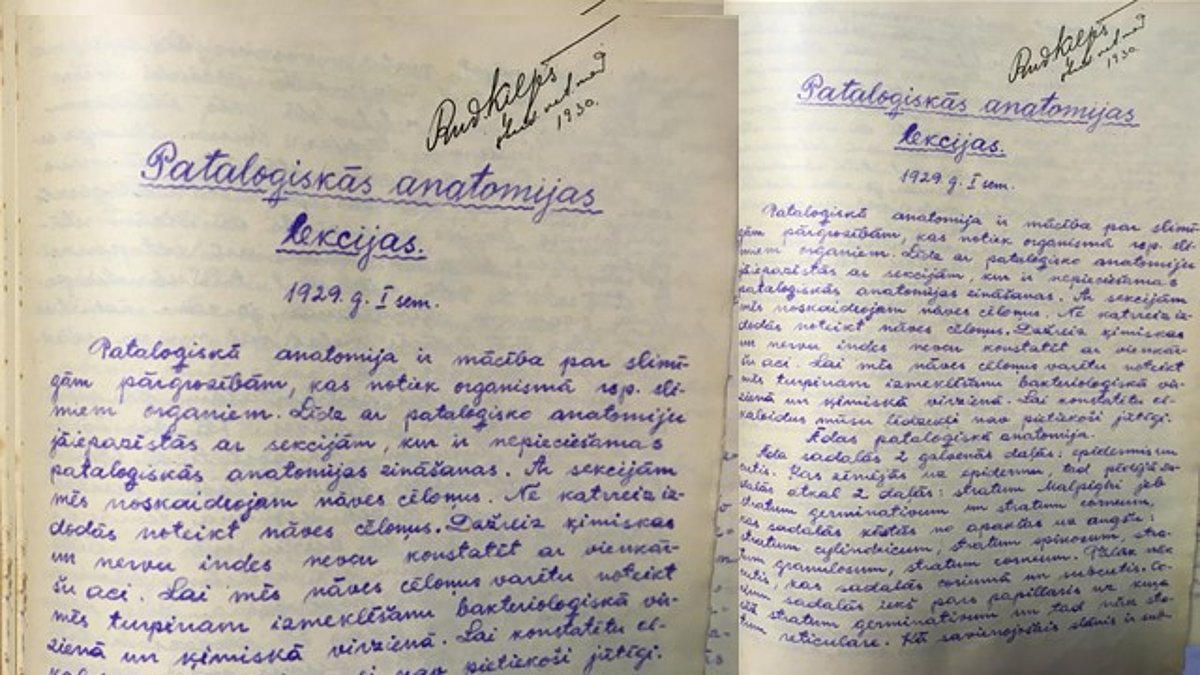 Rud Kalps
stud. vet. med
1930.
Pataloģiskās anatomijas
lekcijas.
1929. g. I sem.
Pataloģiskā anatomija ir mācība par slimī-
gām pārgrozībām, kas notiek organismā rsp. sli-
miem orgāniem. Līdz ar pataloģisko anatomiju
jāiepazīstās ar sekcijām, kur ir nepieciešamas
pataloģiskās anatomijas zināšanas. Ar sekcijām
mēs noskaidrojam nāves cēloņus. Ne katrreiz iz-
dodās noteikt nāves cēloņus. Dažreiz ķīmiskas
un nervu indes nevar konstatēt ar vienkār-
šu aci. Lai mēs nāves cēloņus varētu noteikt
mēs turpinam izmeklēšanu bakterioloģiskā vir-
zienā un ķīmiskā virzienā. Lai konstatētu al-
nav pietiekoši jūtīgi.
Rud Kalps
stud. vet. med
1930.
Pataloģiskās anatomijas
lekcijas.
1929. g. I sem.
Pataloģiskā anatomija ir mācība par slimī-
gām pārgrozībām, kas notiek organismā rsp. sli-
miem orgāniem. Līdz ar pataloģisko anatomiju
jāiepazīstās ar sekcijām, kur ir nepieciešamas
pataloģiskās anatomijas zināšanas. Ar sekcijām
mēs noskaidrojam nāves cēloņus. Ne katrreiz iz-
dodās noteikt nāves cēloņus. Dažreiz ķīmiskas
un nervu indes nevar konstatēt ar vienkār-
šu aci. Lai mēs nāves cēloņus varētu noteikt
mēs turpinam izmeklēšanu bakterioloģiskā vir-
zienā un ķīmiskā virzienā. Lai konstatētu al-
kaloidus mūsu līdzekļi nav pietiekoši jūtīgi.
Ādas pataloģiskā anatomija.
Āda sadalās 2 galvenās daļās: epidermis un
cutis. Kas zīmējās uz epidermu, tad
dalās atkal 2 daļās: stratum Malpighi jeb
stratum germinativum un stratum corneum,
kas sadalās no apakšas uz augšu:
stratum cylindricum, stratum spinosum, stra-
tum granulosum, stratum corneum. Tālāk nāk
cutis, kas sadalās coriumā un subcutis. Co-
rium sadalās iekš pars papillaris uz kuŗa
stratum germinativum un tad nāk stra-
tum reticulare. Kā savienojošais slānis ir sub-